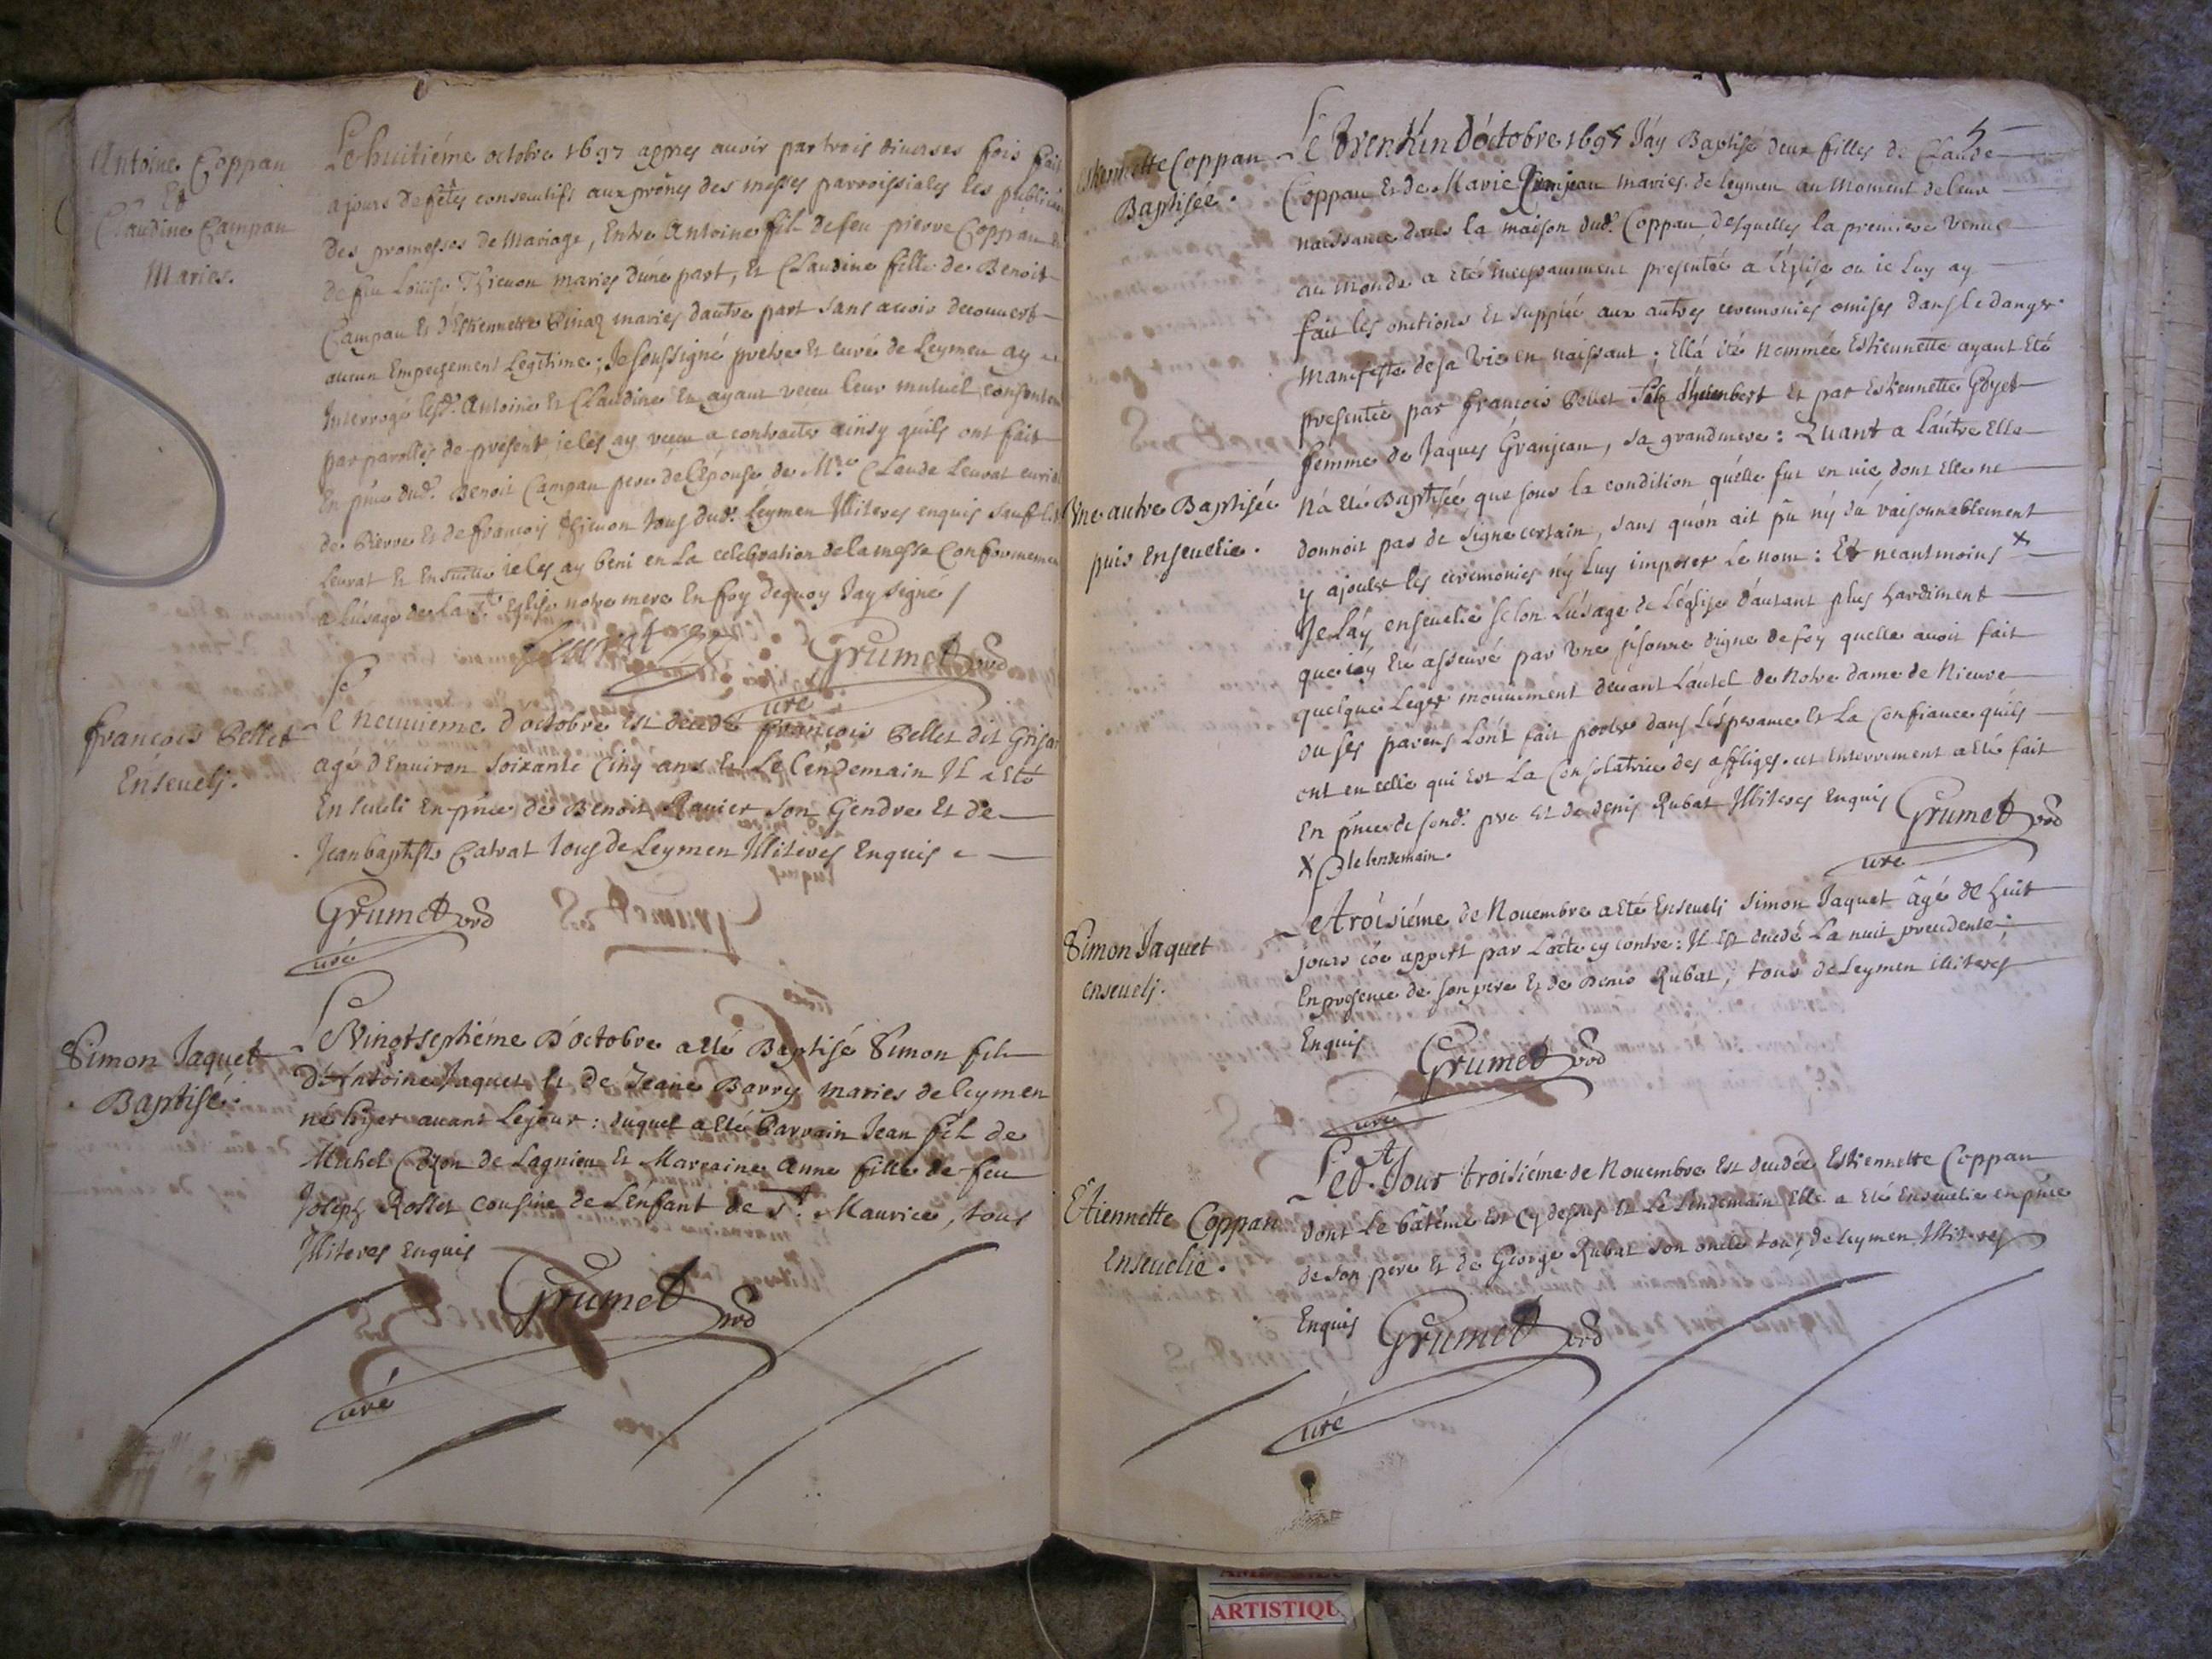 Antoine Coppan
Et
Claudine Campan
Mariés.
Le huitiéme octobre 1697 apres auoir par trois diuerses fois fait
a jours de fêtes consecutifs aux prônes des messes parroissiales les
des promesses de Mariage, Entre Antoine fils de feu pierre Coppan
de feu Louise Thieuon mariés d'une part, Et Claudine fille de Benoit
Campan Et d'Estiennette mariés dautre part sans auoir decouuert
aucun Empeschement Legitime; Je soussigné pretre Et curé de Leymen ay
Interrogé lesd. Antoine Et Claudine En ayant receu leur mutuel
par parolles de present ie les ay receu a contracter ainsy quils ont fait
En pnce dud. Benoit Campan pere de l'Epouse de Mre Claude Leurat
de Pierre Et de françois Thieuon tous dud. Leymen Illiteres enquis sauf
Leurat Et Ensuitte ie les ay beni en La celebration de la messe
a L'usage de La Ste Eglise notre mere En foy dequoy Jay signé /
Leurat Grumet
curé
françois Pellet
Enseueli.
Le neuuieme d'octobre Est decedé françois Pellet dit
agé d'Enuiron soixante Cinq ans Et Le Lendemain Il a Eté
Enseueli En pnce de Benoit Rauier son Gendre Et de
Jean baptiste Catrat tous de Leymen Illiteres Enquis
Grumet
curé
Simon Jaquet
Baptisé.
Le Vingtseptiéme D'octobre a Eté Baptisé Simon fils
d'Antoine Jaquet Et de Jeane Barry mariés de leymen
né hyer auant Lejour: duquel a Eté Parrain Jean fils de
Michel Cozon de Lagnieu Et Marraine Anne fille de feu
Joseph Rollet cousine de L'enfant de St. Maurice, tous
Illiteres Enquis
Grumet
curé
5
Estiennette Coppan
Baptisée.
Le Trentiin d'octobre 1697 J'ay Baptisé deux filles de Claude
Coppan Et de Marie Granjean mariés de leymen au Moment de leur
naissance dans la maison dud. Coppan, desquelles la premiere venue
au monde a eté incessamment presentée a L'Eglise ou ie Luy ay
fait les onctions Et suppleé aux autres ceremonies omises dans le danger
manifeste de sa vie en naissant; Ell'a été Nommée Estiennette ayant Eté
presentée par françois Pellet et par Estiennette Goyet
femme de Jaques Granjean, sa grandmere: Quant a L'autre Elle
Vne autre Baptisée
puis Enseuelie.
N'a Eté Baptisée que sous la condition quélle fut en vie, dont Elle ne
donnoit pas de signe certain, sans quón ait pû ny dû raisonnablement
y ajouter les ceremonies ny Luy imposer Le nom: Et neantmoins x
Je L'ay enseuelie selon L'usage de L'église d'autant plus hardiment
que j'ay Eté asseuré par vne psonne digne de foy quelle auoit fait
quelque Leger mouuement deuant L'autel de Notre dame de Nieure
ou ses parens L'ont fait porter dans L'ésperance Et La Confiance quils
ont en celle qui Est La Consolatrice des affligés. cet Enterrement a Eté fait
En pnce de sond. pre Et de denis Rubat Illiteres Enquis Grumet
x le lendemain. curé
Simon Jaquet
enseueli.
Le troisiéme de Nouembre a Eté Enseueli Simon Jaquet âgé de huit
jours cõe appert par L'acte cy contre: Il Est decedé La nuit precedente;
En presence de son pere Et de Denis Rubat, tous de Leymen illiteres
Enquis Grumet
curé
Etiennette Coppan
Enseuelie.
Led. Jour troisiéme de Nouembre Est decedée Estiennette Coppan
dont Le bâtéme est cy dessus Et Le Lendemain Elle a Eté Enseuelie en pnce
de son pere Et de George Rubat son oncle tous de leymen Illiteres
Enquis Grumet
curé
ARTISTIQU